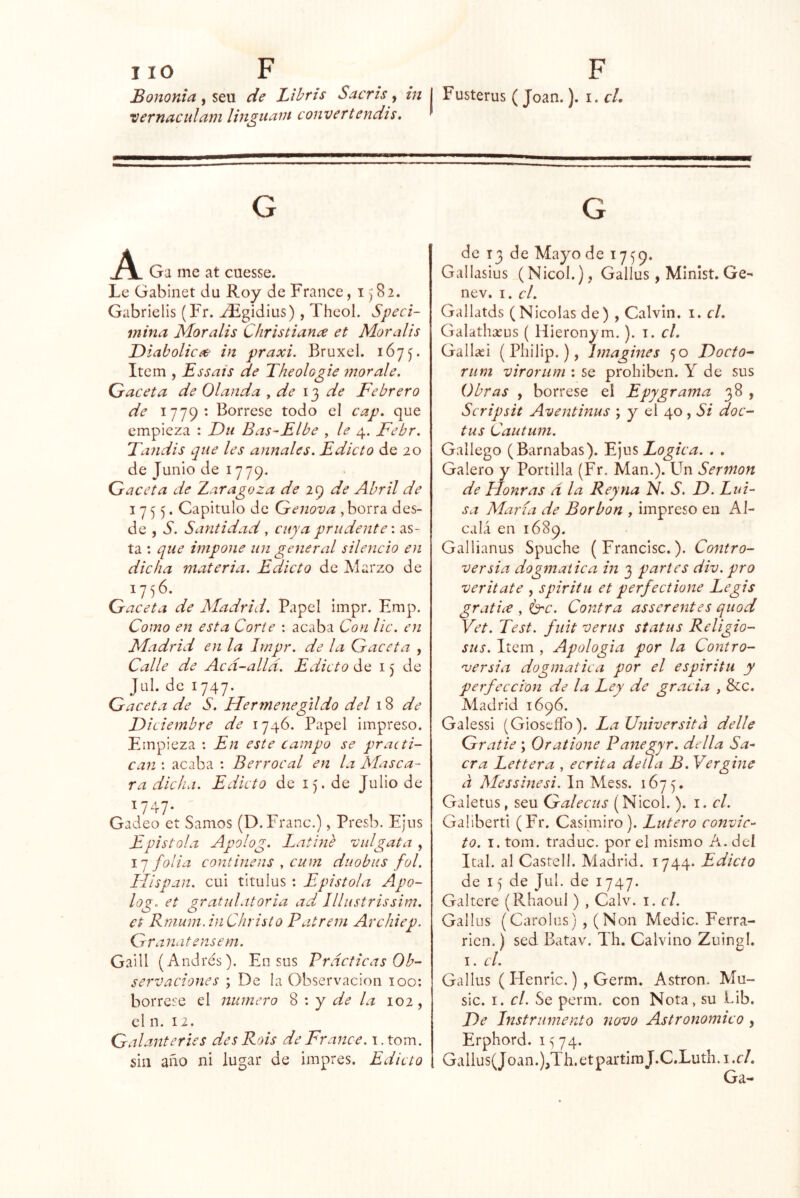 110 F
Bononia, seu de Libris Sacris, in
vernaculam linguam convertendis.
F
Fusterus (Joan.). 1. cl.
G
A Ga me at cuesse.
Le Gabinet du Roy de France, 1582.
Gabrielis (Fr. Ægidius), Theol. Speci-
mina Moralis Christianæ et Moralis
Diabolicæ in praxi. Bruxel. 1675.
Item, Essais de Theologie morale.
Gaceta de Olanda, de 13 de Febrero
de 1779: Borrese todo el cap. que
empieza : Du Bas-Elbe, le 4. Febr.
Tandis que les annales. Edicto de 20
de Junio de 1779.
Gaceta de Zaragoza de 29 de Abril de
1755. Capitulo de Genova, borra des-
de, S. Santidad, cuya prudente: as-
ta : que impone un general silencio en
dicha materia. Edicto de Marzo de
1756.
Gaceta de Madrid. Papel impr. Emp.
Como en esta Corte : acaba Con lic. en
Madrid en la Impr. de la Gaceta,
Calle de Acá-allá. Edicto de 15 de
Jul. de 1747.
Gaceta de S. Hermenegildo del 18 de
Diciembre de 1746. Papel impreso.
Empieza : En este campo se practi-
can : acaba : Berrocal en la Masca-
ra dicha. Edicto de 15. de Julio de
1747.
Gadeo et Samos (D. Franc.), Presb. Ejus
Epistola Apolog. Latinè vulgata,
17 folia continens, cum duobus fol.
Hispan. cui titulus : Epistola Apo-
log. et gratulatoria ad Illustrissim.
et Rmum. in Christo Patrem Archiep.
Granatensem.
Gaill (Andrés). En sus Prácticas Ob-
servaciones ; De la Observacion 100:
borrese el numero 8 : y de la 102,
el n. 12.
Galanteries des Rois de France. 1. tom.
sin año ni lugar de impres. Edicto
G
de 13 de Mayo de 1759.
Gallasius (Nicol.), Gallus, Minist. Ge-
nev. 1. cl.
Gallatds (Nicolas de), Calvin. 1. cl.
Galathæus (Hieronym.). 1. cl.
Gallæi (Philip.), Imagines 50 Docto-
rum virorum : se prohiben. Y de sus
Obras, borrese el Epygrama 38,
Scripsit Aventinus ; y el 40, Si doc-
tus Cautum.
Gallego (Barnabas). Ejus Logica. . .
Galero y Portilla (Fr. Man.). Un Sermon
de Honras á la Reyna N. S. D. Lui-
sa María de Borbon, impreso en Al-
calá en 1689.
Gallianus Spuche (Francisc.). Contro-
versia dogmatica in 3 partes div. pro
veritate, spiritu et perfectione Legis
gratiæ, &c. Contra asserentes quod
Vet. Test. fuit verus status Religio-
sus. Item, Apologia por la Contro-
versia dogmatica por el espiritu y
perfeccion de la Ley de gracia, &c.
Madrid 1696.
Galessi (Gioseffo). La Università delle
Gratie ; Oratione Panegyr. della Sa-
cra Lettera, ecrita della B. Vergine
à Messinesi. In Mess. 1675.
Galetus, seu Galecus (Nicol.). 1. cl.
Galiberti (Fr. Casimiro). Lutero convic-
to. 1. tom. traduc. por el mismo A. del
Ital. al Castell. Madrid. 1744. Edicto
de 15 de Jul. de 1747.
Galtere (Rhaoul), Calv. 1. cl.
Gallus (Carolus), (Non Medic. Ferra-
rien.) sed Batav. Th. Calvino Zuingl.
1. cl.
Gallus (Henric.), Germ. Astron. Mu-
sic. 1. cl. Se perm. con Nota, su Lib.
De Instrumento novo Astronomico,
Erphord. 1574.
Gallus(Joan.),Th.et partim J.C.Luth.1.cl.
Ga-